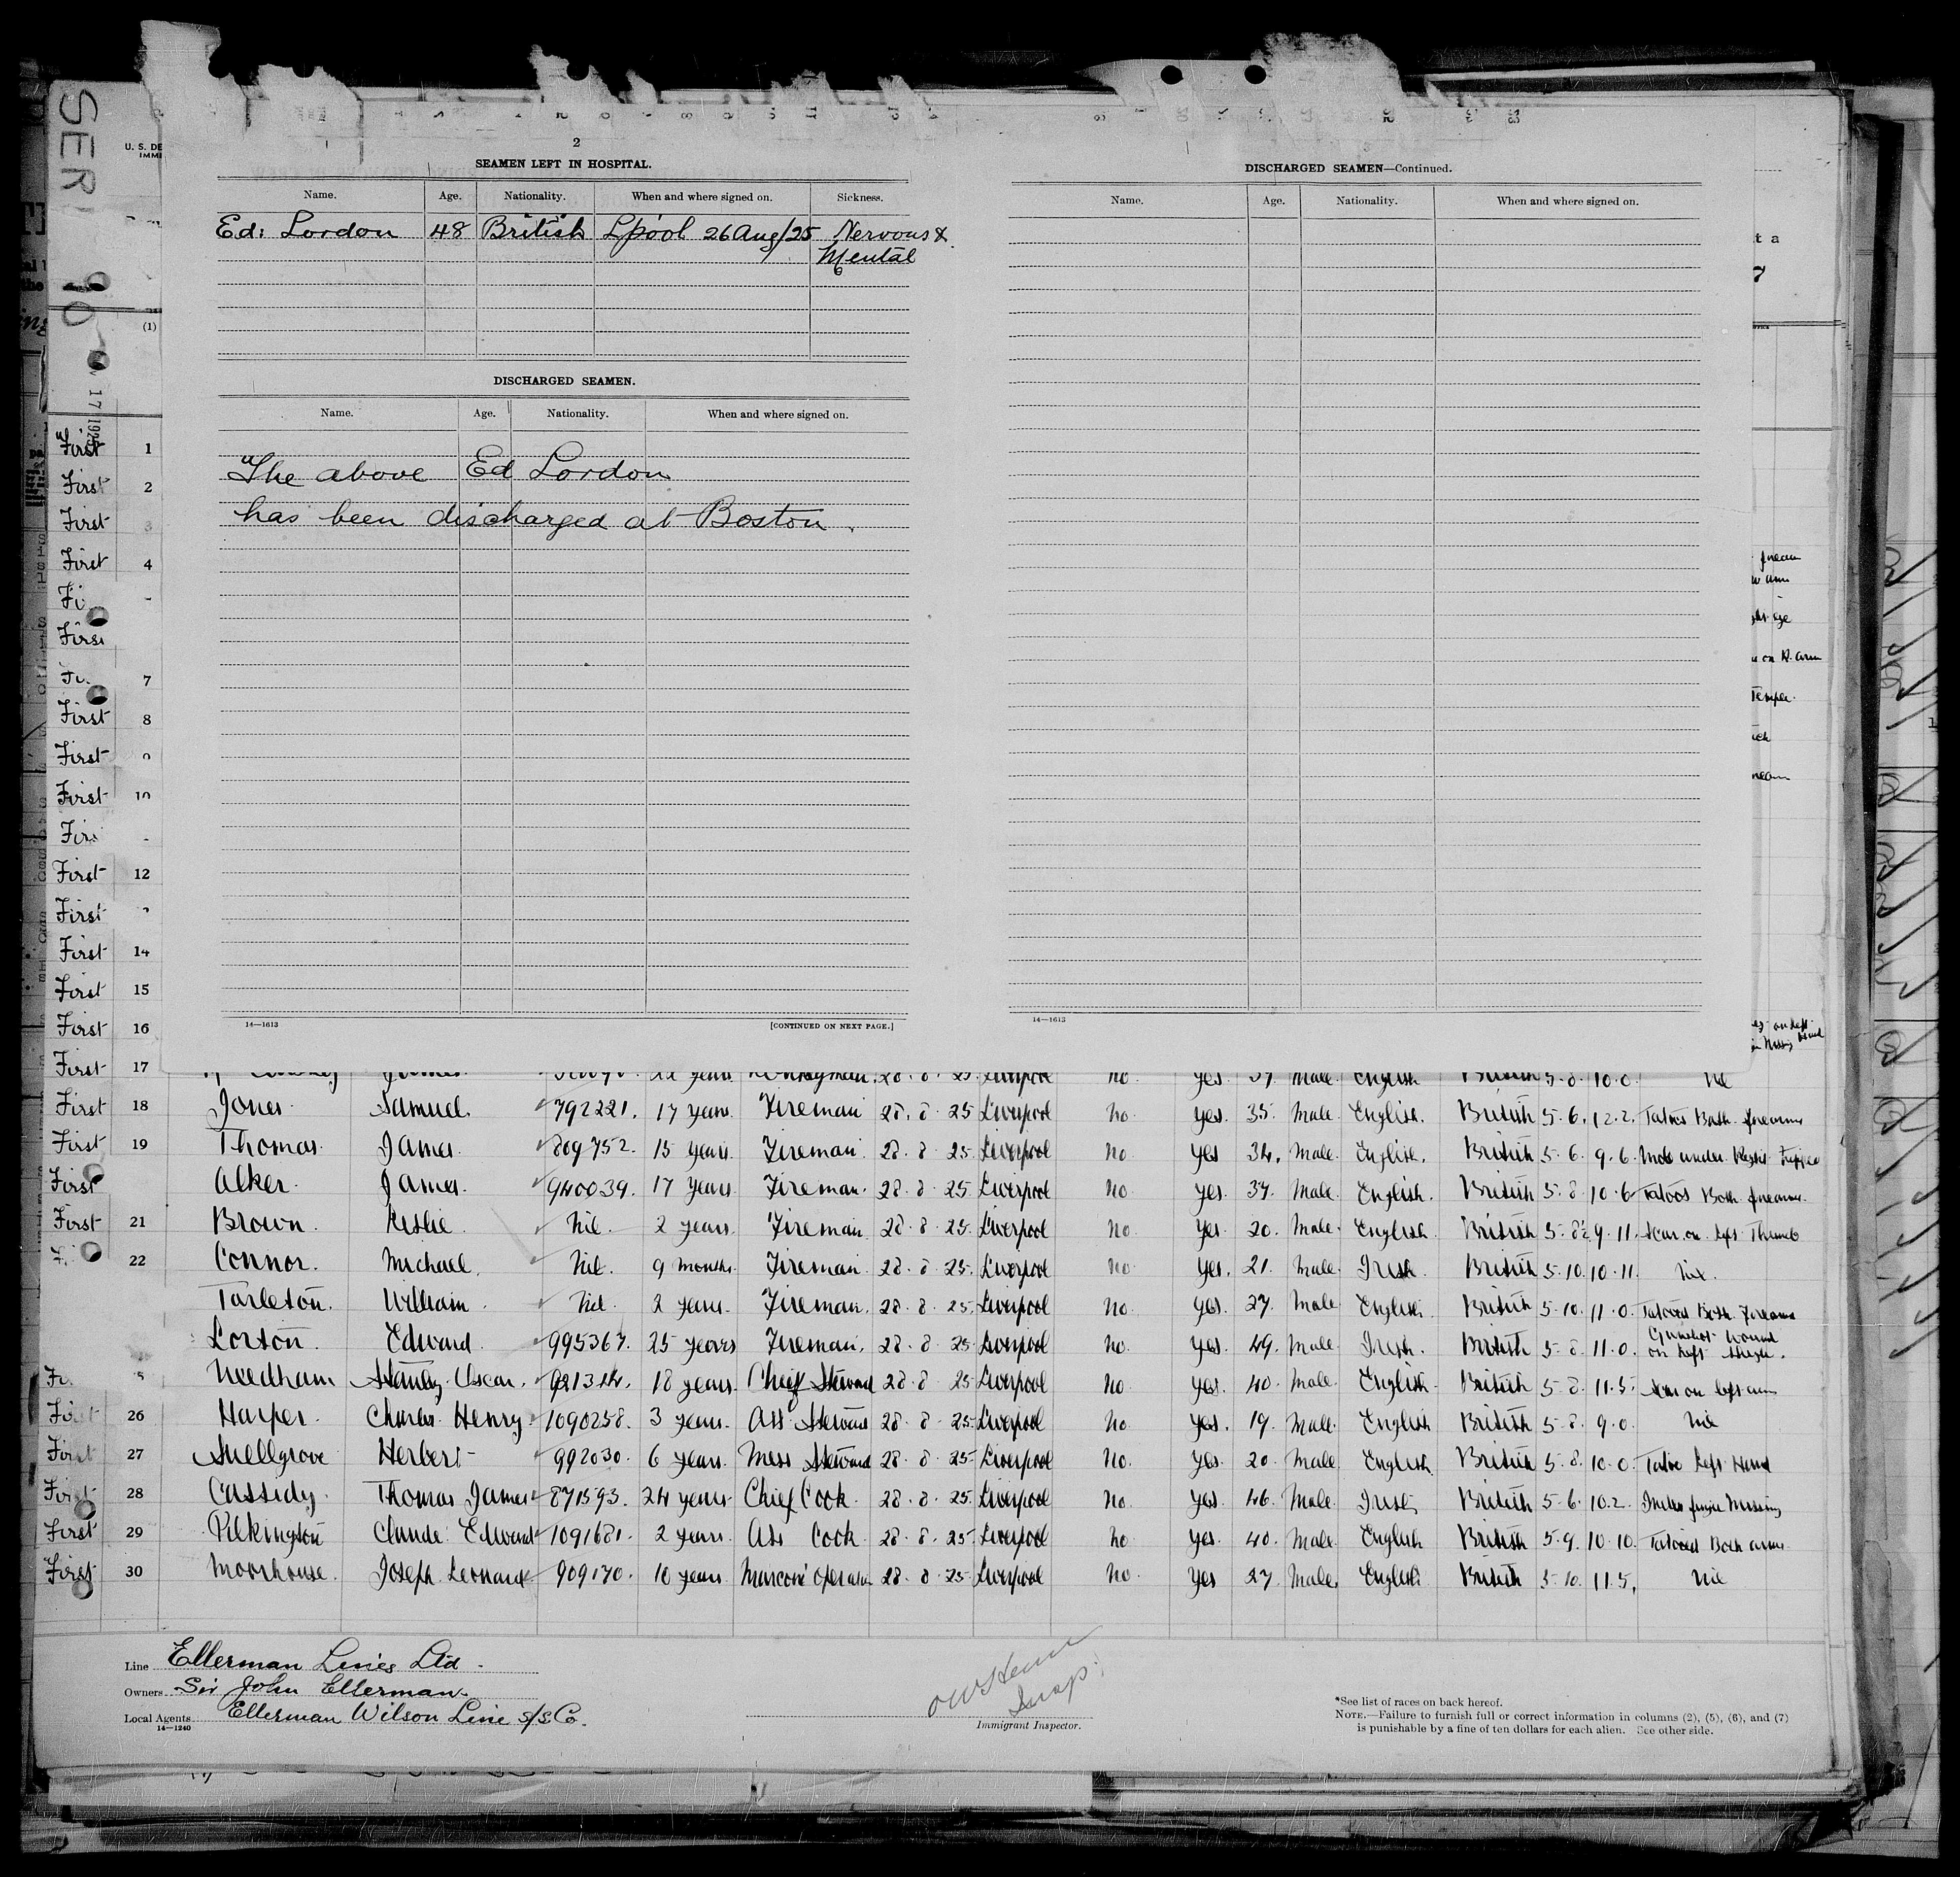 SER
U. S. DE
IMMI
2
SEAMEN LEFT IN HOSPITAL.
Name. Age. Nationality. When and where signed on. Sickness.
Ed: Lordon 48 British L'pool 26 Aug/25 Nervous &
Mental
DISCHARGED SEAMEN.
Name. Age. Nationality. When and where signed on.
The above Ed Lordon
has been discharged at Boston.
14—1613 [CONTINUED ON NEXT PAGE.]
DISCHARGED SEAMEN—Continued.
Name. Age. Nationality. When and where signed on.
14—1613
(1)
First 1
First 2
First 3
First 4
First
7
First 8
First
First 10
First 12
First
First 14
First 15
First 16
First 17 22 years 28. 8. 25. Liverpool no yes. 39. Male English British 5. 8. 10. 0. Nil
First 18 Jones Samuel. 792221. 17 years. Fireman 28. 8. 25 Liverpool no. yes. 35. Male. English. British 5. 6. 12. 2. Tatoos Both forearms
First 19 Thomas. James. 809752. 15 years. Fireman. 28. 8. 25. Liverpool no. yes 34. Male. English. British 5. 6. 9. 6. Mole under Right
First Alker. James. 940039. 17 years. Fireman. 28. 8. 25. Liverpool no. yes. 37. Male. English. British 5. 8. 10. 6 Tatoos Both forearms.
First 21 Brown. Leslie. Nil. 2 years. Fireman. 28. 8. 25. Liverpool no. yes. 20. Male. English. British 5. 8½ 9. 11. Scar on left Thumb
22 Connor. Michael. Nil. 9 months. Fireman. 28. 8. 25. Liverpool no. yes. 21. Male. Irish. British 5. 10. 10. 11. Nil.
Tarleton. William. Nil. 2 years. Fireman. 28. 8. 25. Liverpool no. yes. 27. Male English. British 5. 10. 11. 0. Tatooed Both Forearms
Lorton. Edward. 995367. 25 years Fireman. 28. 8. 25. Liverpool no. yes. 49. Male. Irish. British 5. 8. 11. 0. Gunshot wound
on left thigh.
Needham Stanley Oscar. 921314. 18 years. Chief Steward 28. 8. 25 Liverpool no. yes. 40. Male. English. British 5. 8. 11. 5. Scar on left arm
First 26 Harper. Charles Henry 1090258. 3 years. Ass Steward 28. 8. 25. Liverpool no. yes. 19. Male. English British 5. 8. 9. 0. Nil
First 27 Snellgrove Herbert 992030. 6 years. Mess Steward 28. 8. 25. Liverpool no. yes. 20. Male English. British 5. 8. 10. 0. Tatoo left Hand
First 28 Cassidy. Thomas James 871593. 24 years Chief Cook. 28. 8. 25. Liverpool no. yes. 46. Male. Irish British 5. 6. 10. 2. Index finger Missing
First 29 Pilkington Claude Edward 1091681. 2 years. Ass Cook. 28. 8. 25. Liverpool no yes. 40. Male. English British 5. 9. 10. 10. Tatooed Both arms.
First 30 Moorhouse. Joseph Leonard 909170. 10 years Marconi Operator 28. 8. 25. Liverpool no. yes 27. Male. English British 5. 10. 11. 5. Nil
Line Ellerman Lines Ltd.
Owners Sir John Ellerman.
Local Agents Ellerman Wilson Line S/S Co.
14—1240
Insp.
Immigrant Inspector.
*See list of races on back hereof.
NOTE.—Failure to furnish full or correct information in columns (2), (5), (6), and (7)
is punishable by a fine of ten dollars for each alien. See other side.